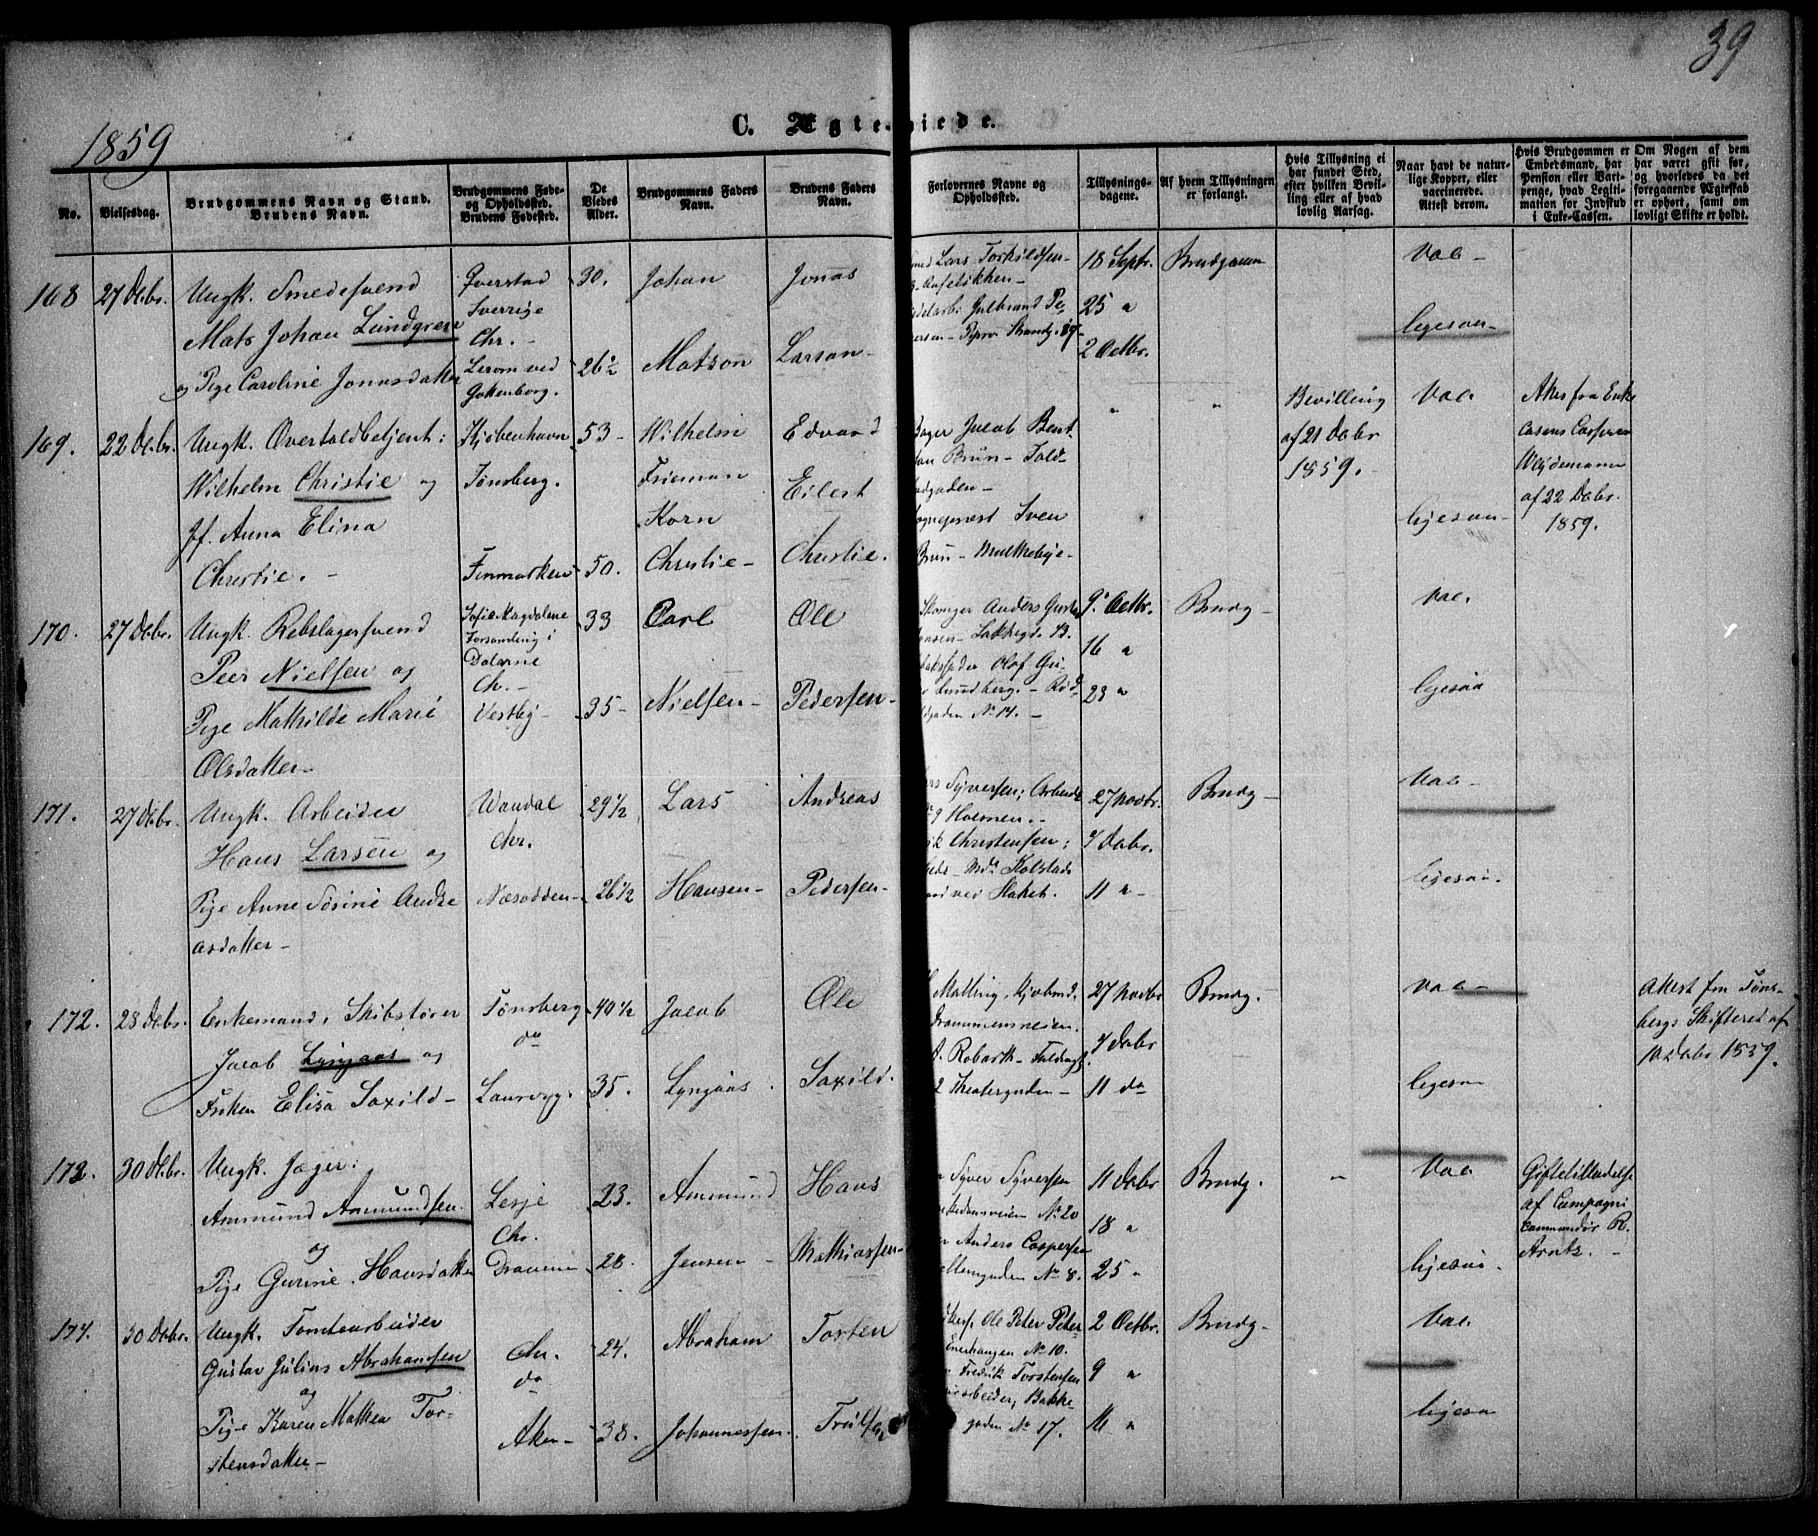 39
1859
C. Ægteviede.
No.
Vielsesdag.
Brudgommens Navn og Stand.
Brudens Navn.
Brudgommens Føde-
og Opholdssted.
Brudens Fødested.
De
Viedes
Alder.
Brudgommens Faders
Navn.
Brudens Faders
Navn.
Forlovernes Navne og
Opholdssted.
Tillysnings-
dagene.
Af hvem Tillysningen
er forlangt.
Hvis Tillysning ei
har fundet Sted,
efter hvilken Bevil-
ling eller af hvad
lovlig Aarsag.
Naar havt de natur-
lige Kopper, eller
vaccinerede.
Attest derom.
Hvis Brudgommen er
Embedsmand, har
Pension eller Vart-
penge, hvad Legiti-
mation for Indskud
i Enke-Cassen.
Om Nogen af dem
har været gift før,
og hvorledes da det
foregaaende Ægteskab
er ophørt, samt om
lovligt Skifte er holdt.
168 27 Debr. Ungk. Smedesvend
Mats Johan Lundgren
og Pige Caroline Jonasdatter
Qverstad
Sverrige
Chr. -
Lerom ved
Gottenborg.
30.
26½
Johan
Matson
Jonas
Larson -
Lars Torkildsen -
Gulbrand Pe-
18 Septr.
25 "
2 Octbr.
Brudgommen
Vac -
ligesaa -
169. 22 Debr. Ungk. Overtoldbetjent:
Wilhelm Christie og
Jf. Anna Elina
Christie. -
Kjøbenhavn
Tønsberg.
Finmarken
53 -
50.
Wilhelm
Frieman
Korn
Christie -
Edvard
Eilert
Christie.
Jacob Bent
Brun - Told-
bodgaden -
Sognepræst Sven
Brun -
"
"
Bevilling
af 21 Debr
1859.
Vac
ligesaa -
Attest fra Enke
Casens Casserer
Weydemann
af 22 Debr.
1859.
170. 27 Debr. Ungk. Rebslagersvend
Peer Nielsen og
Pige Mathilde Marie
Olsdatter -
Sofie Magdalene
Forsamling i
Dalarne
Ch. -
Vestby -
33
35 -
Carl
Nielsen -
Ole
Pedersen -
Anders Gusta
Olof Gu-
Lundberg. - Rød-
No 14. -
9. Octbr.
16 "
23 "
Brudg -
Vac.
ligesaa
171. 27 Debr. Ungk. Arbeider
Hans Larsen og
Pige Anne Sørine Andre
asdatter -
Wardal
Chr.
Næsodden -
29½
26½
Lars
Hansen -
Andreas
Pedersen -
Syversen; Arbeids
9 Holmen. -
Christensen;
ved Haket.
27 Novbr.
4 Debr.
11 " -
Brudg -
Vac -
ligesaa.
172. 28 Debr. Enkemand, Skibsfører
Jacob Lyngaas og
Frøken Elisa Saxild -
Tønsberg
do
Laurvig.
40½
35.
Jacob
Lyngaas.
Ole
Saxild.
Malling, Kjøbmd.
Drammensveien.
Robark -
2 Theatergaden -
27 Novbr
4 Debr
11 do
Brudg.
Vac -
ligesaa
Attest fra Tøns-
bergs Skifteret af
10 Debr 1859.
173. 30 Debr. Ungk. Jæger:
Ammund Ammundsen.
og
Pige Gurine Hansdatter
Lesje
Chr.
Drammen
23.
28.
Ammund
Jensen -
Hans
Mathiassen -
Syver Syversen
No 20
Anders Caspersen
No 8.
11 Debr
18 "
25 "
Brudg.
"
Vac.
ligesaa.
Giftetilladelse
af Campagni
commandør R.
Arntz. -
174. 30 Debr. Ungk. Tomtearbeider
Gustav Julius Abrahamsen
og
Pige Karen Mathea Tor-
stensdatter -
Chr.
do
Aker -
24.
38.
Abraham
Johannessen.
Torsten
Ole Peter Peter-
Enerhaugen No 10.
Fredrik Torstensen
arbeider, Bakke-
gaden No 17.
2 Octbr.
9 "
16 "
Brudg -
Vac.
ligesaa